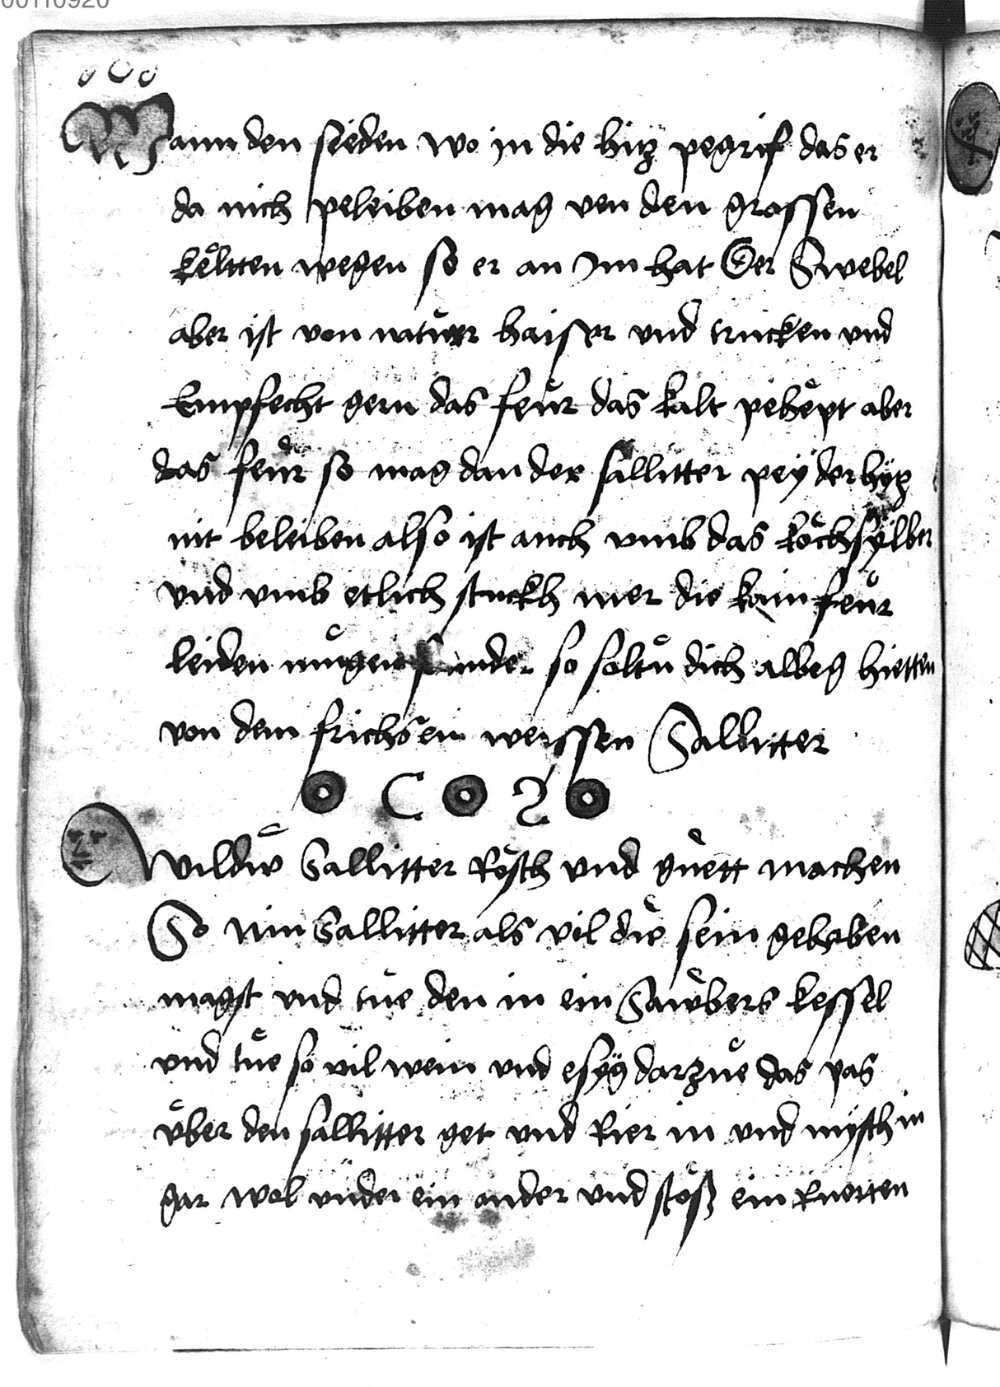 00110920
Wann den sieden wo in die hitz pegrif das er
da nich peleiben mag von den grossen
keltten wegen so er an im hat Der Swebel
aber ist von natuer haiser vnd trucken vnd
Empfecht gern das feür das kalt pehept aber
das feür so mag dan der sallitter pey der hyz
nit beleiben also ist auch vmb das kochsylber
vnd vmb etlich stuckh mer die kain feür
leiden mügen so soltu dich albeg hietten
von dem frichsen weissen Sallitter
Wildw Sallitter Rösch vnd guett machen
So nim Sallitter als vil dw sein gehaben
magst vnd tue den in ein Sawbers kessel
vnd tue so vil wein vnd esyg darzue das pas
vber den sallitter get vnd Rier in vnd mysth in
gar wol vnder ein ander vnd stöß ein Ruetten